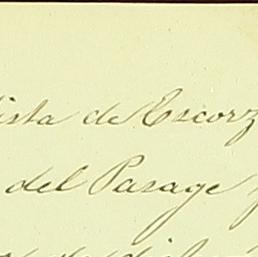 ista de Escorz
del Pasage